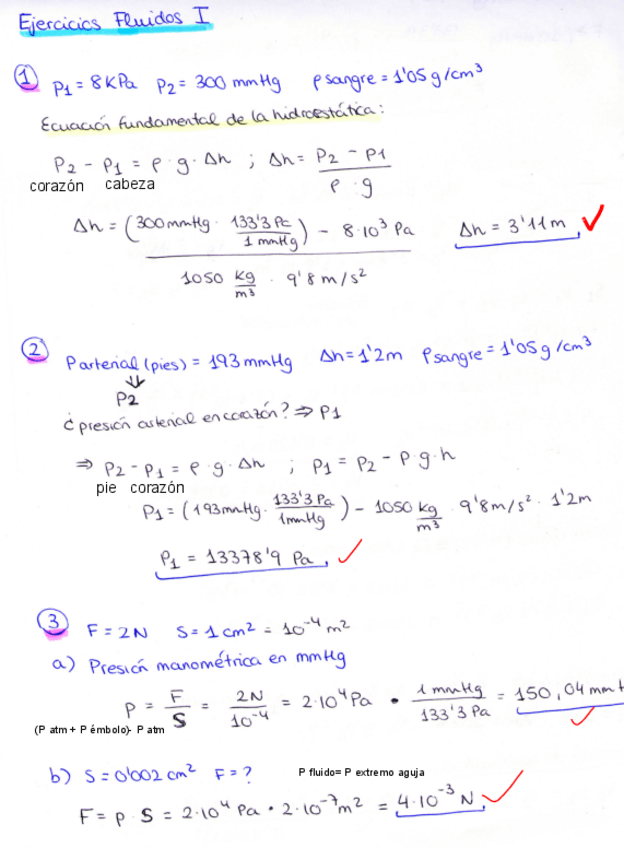 Ejercicios Fluidos I
① P1 = 8KPa P2 = 300 mmHg ρsangre = 1'05 g/cm³
Ecuación fundamental de la hidroestática:
P2 - P1 = ρ · g · Δh ; Δh = P2 - P1 / ρ · g
corazón cabeza
Δh = (300mmHg · 133'3 Pa / 1 mmHg) - 8·10³ Pa / 1050 kg/m³ · 9'8 m/s² Δh = 3'11m ✓
② Parterial (pies) = 193 mmHg Δh = 1'2m ρsangre = 1'05 g/cm³
⇓
P2
¿presión arterial en corazón? ⇒ P1
⇒ P2 - P1 = ρ · g · Δh ; P1 = P2 - ρ · g · h
pie corazón
P1 = (193mmHg · 133'3 Pa / 1mmHg) - 1050 kg/m³ · 9'8 m/s² · 1'2m
P1 = 13378'9 Pa ✓
③ F = 2N S = 1 cm² = 10⁻⁴ m²
a) Presión manométrica en mmHg
P = F / S = 2N / 10⁻⁴ = 2·10⁴ Pa · 1 mmHg / 133'3 Pa = 150,04 mm
(P atm + P émbolo)- P atm
b) S = 0'002 cm² F = ? P fluido= P extremo aguja
F = p · S = 2·10⁴ Pa · 2·10⁻⁷ m² = 4·10⁻³ N ✓